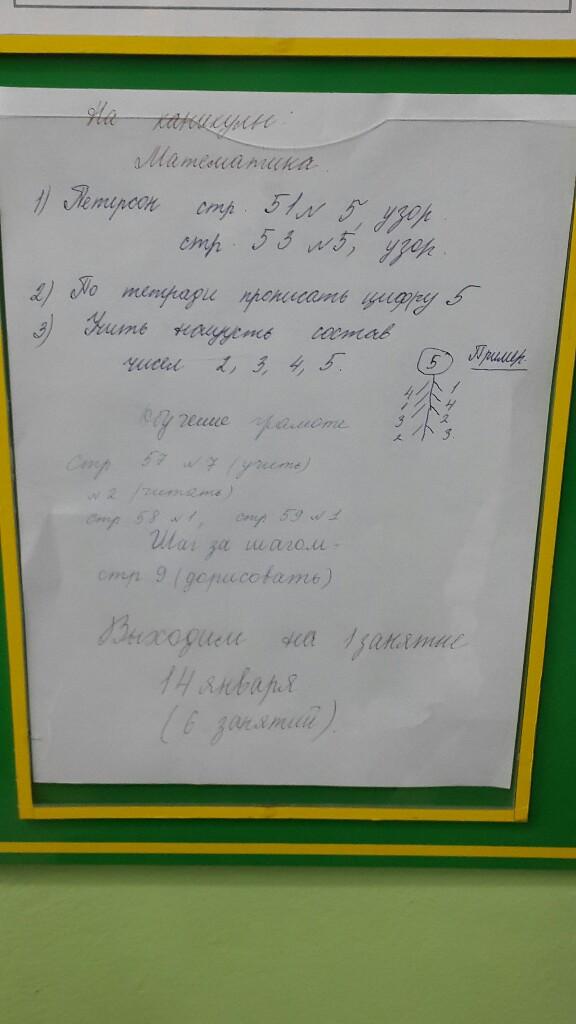 На каникулы:
Математика.
1) Петерсон стр. 51 № 5, узор.
стр. 53 №5, узор.
2) По тетради прописать цифру 5
3) Учить наизусть состав
чисел 2, 3, 4, 5.
5 Пример.
4 1
1 4
3 2
2 3
Обучение грамоте
Стр 57 №7 (учить)
№2 (читать)
стр 58 №1, стр 59 №1
Шаг за шагом-
стр 9 (дорисовать)
Выходим на 1 занятие
14 января
(6 занятий).